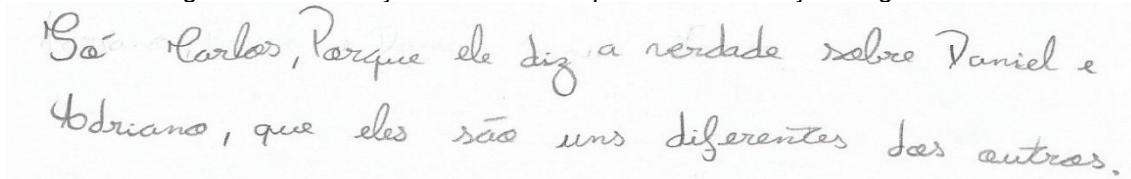 Só Carlos, Porque ele diz a verdade sobre Daniel e
Adriano, que eles são uns diferentes dos outros.